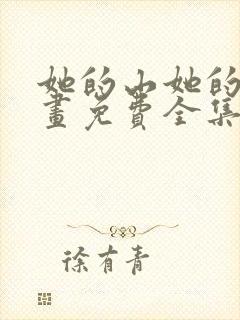 她的山她的
画免费全集
徐有青